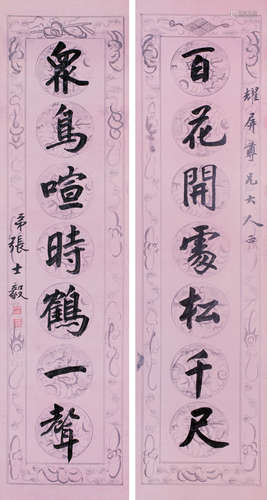 耀屏尊兄大人正
百花開處松千尺
衆鳥喧時鶴一聲
弟張士毅